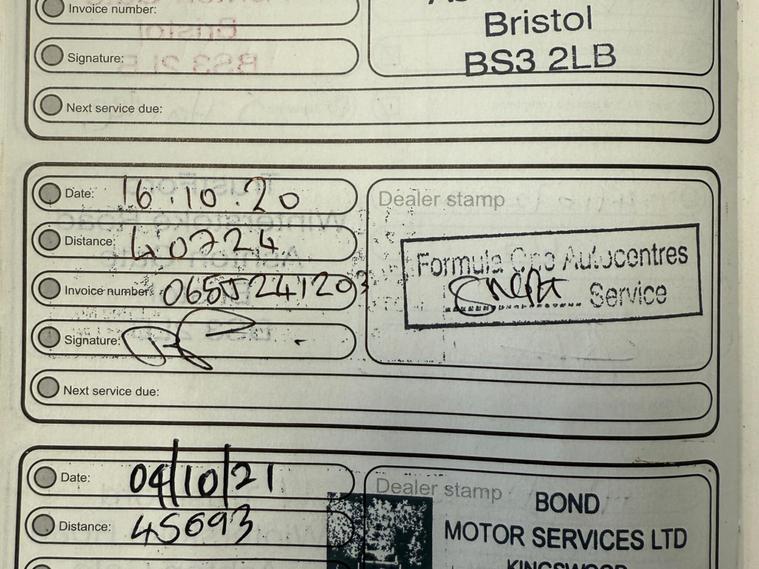 Invoice number:
Bristol
Signature:
BS3 2LB
Next service due:
Date: 16.10.20
Dealer stamp
Distance: 40724
Formula One Autocentres
Invoice number:
Service
Signature:
Next service due:
Date: 04/10/21
Dealer stamp
BOND
Distance: 45693
MOTOR SERVICES LTD
KINGSWOOD